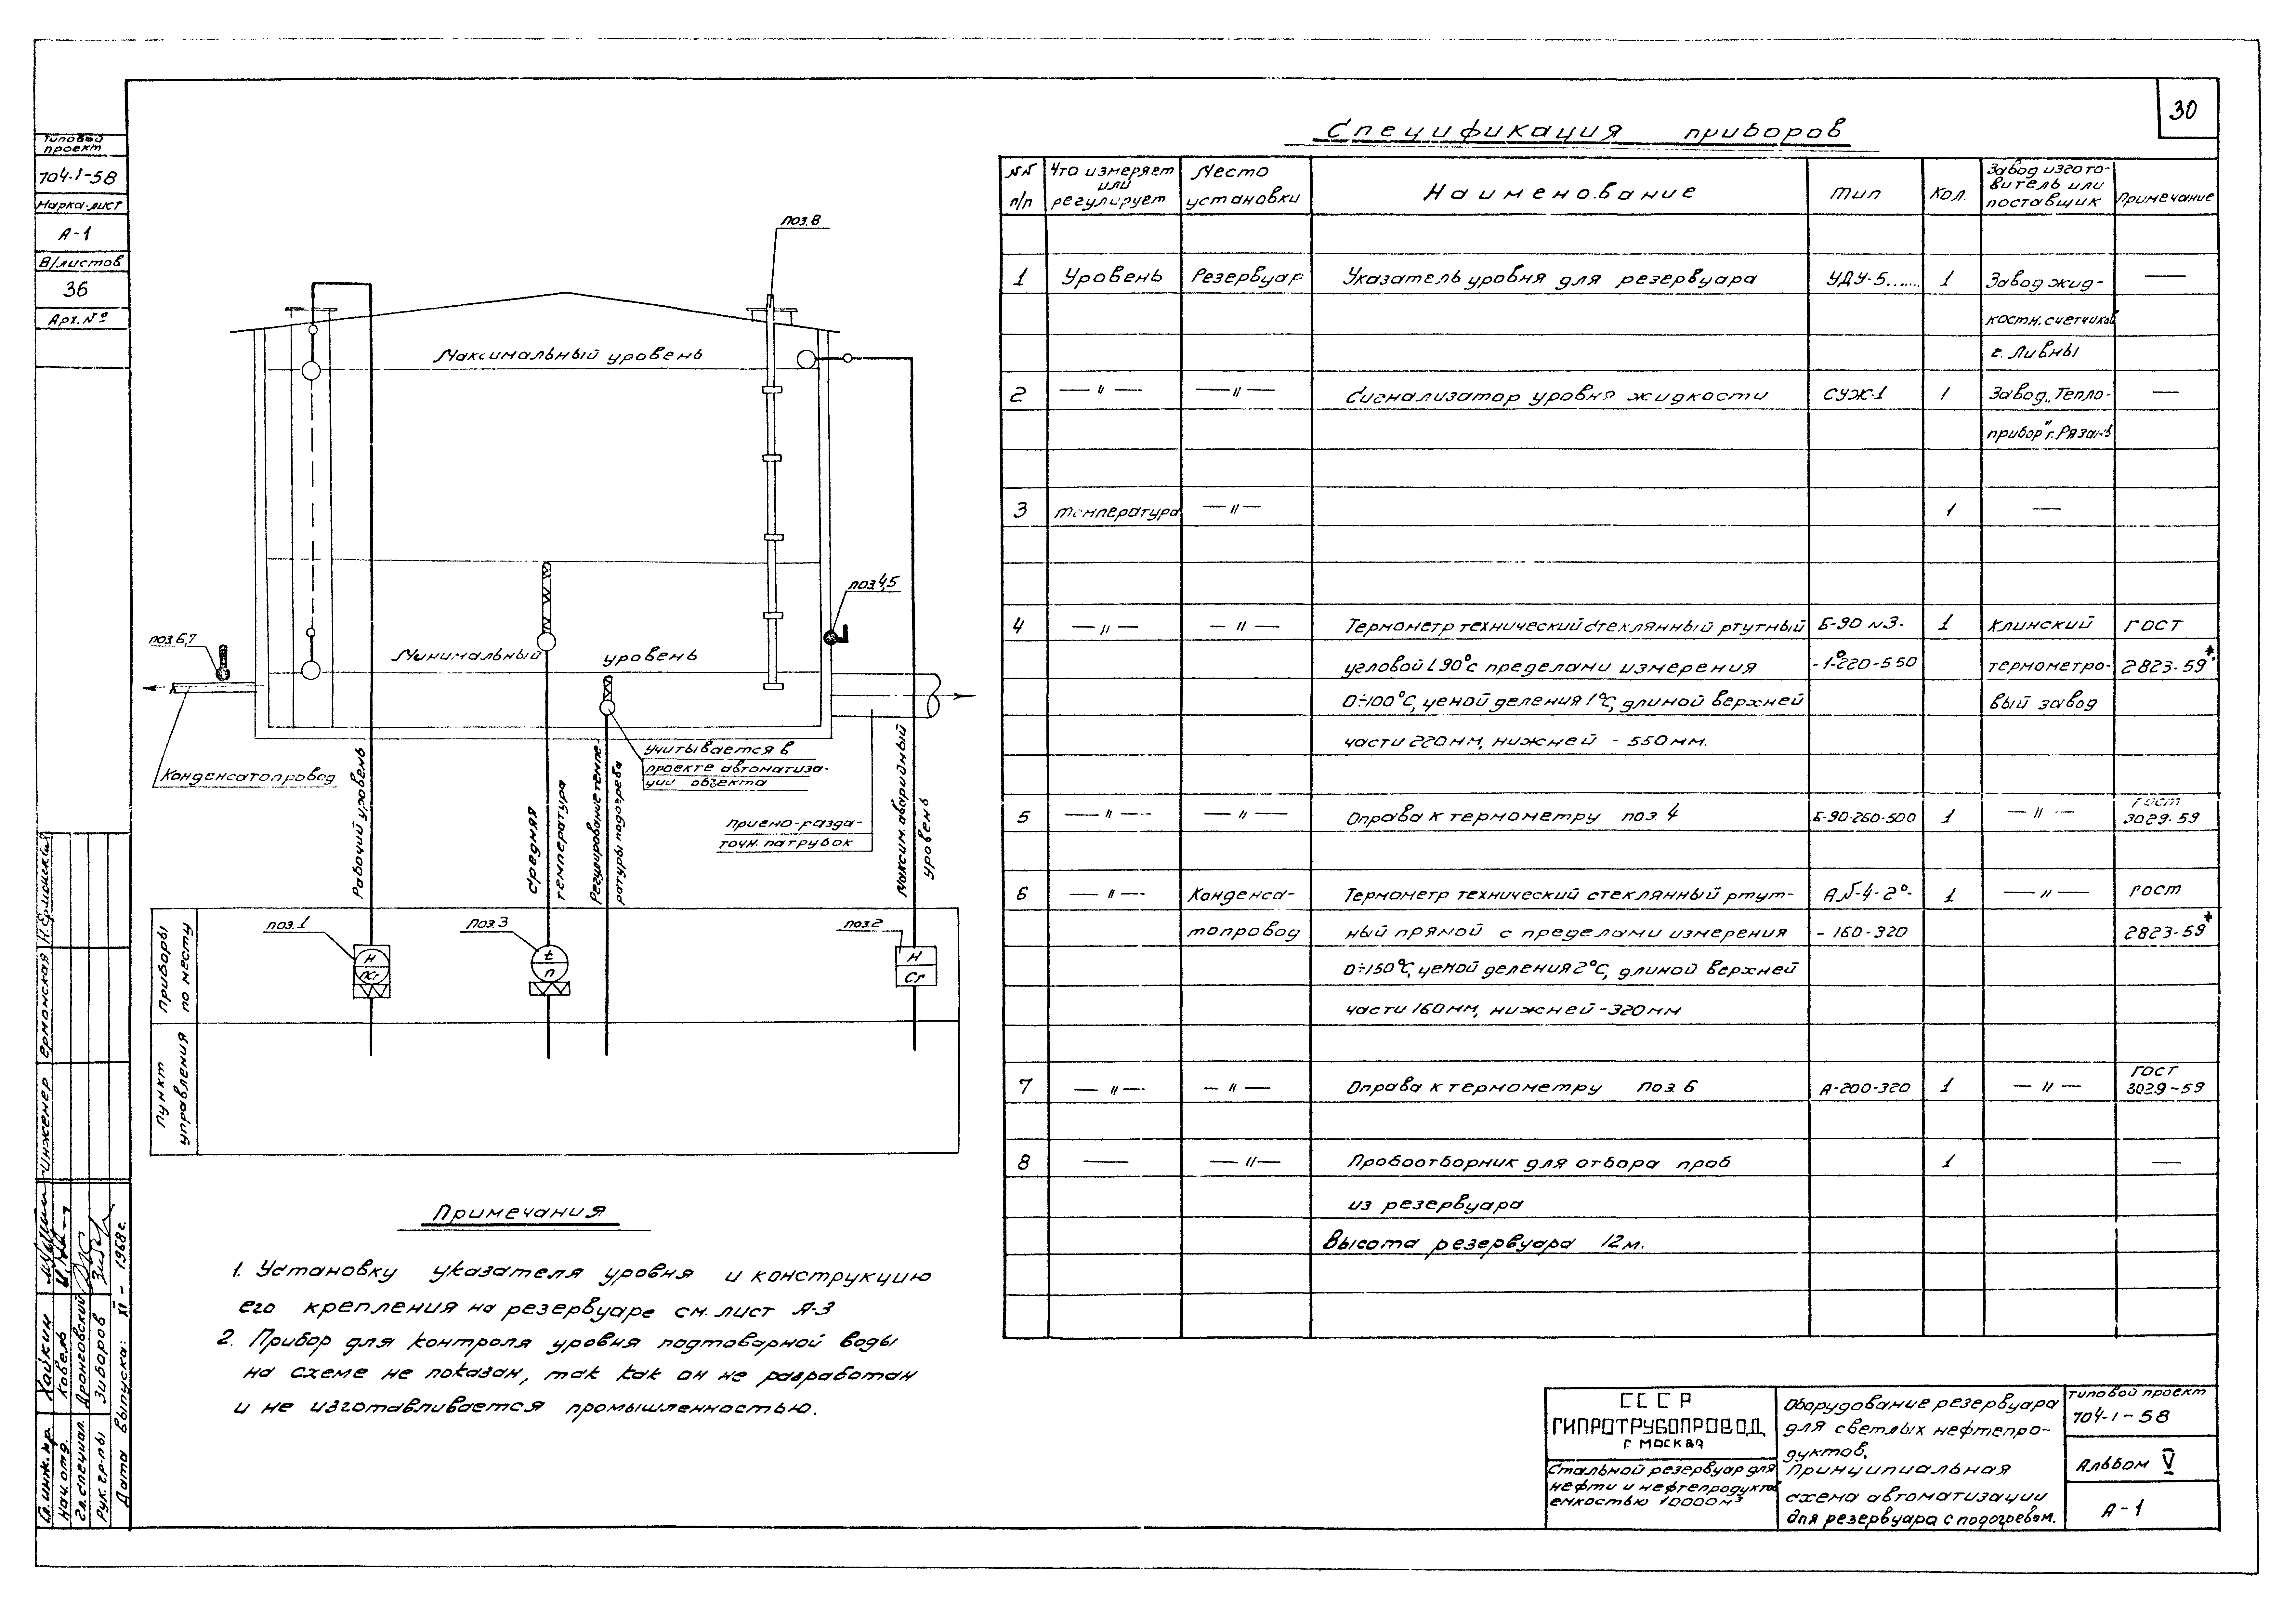 30
Типовой
проект
704-1-58
Марка-лист
А-1
В/листов
36
Арх. №
поз.8
Максимальный уровень
поз.4,5
поз.6,7
Минимальный уровень
Конденсатопровод
Рабочий уровень
Средняя
температура
Регулирование темпе-
ратуры подогрева
учитывается в
проекте автоматиза-
ции объекта
Приемо-разда-
точн. патрубок
Максим. аварийный
уровень
Приборы
по месту
поз.1
Н
поз.3
t
п
поз.2
Н
Сг
Пункт
управления
Примечания
1. Установку указателя уровня и конструкцию
его крепления на резервуаре см. лист А-3
2. Прибор для контроля уровня подтоварной воды
на схеме не показан, так как он не разработан
и не изготавливается промышленностью.
Спецификация приборов
№№ п/п
Что измеряет или регулирует
Место установки
Наименование
Тип
Кол.
Завод изгото-
витель или
поставщик
Примечание
1 Уровень Резервуар Указатель уровня для резервуара УДУ-5...... 1 Завод жид- —
костн. счетчиков
г. Ливны
2 —〃— —〃— Сигнализатор уровня жидкости СУЖ-1 1 Завод „Тепло- —
прибор" г. Рязань
3 температура —〃— 1 —
4 —〃— —〃— Термометр технический стеклянный ртутный Б-90 №3- 1 Клинский ГОСТ
угловой L 90°с пределами измерения -1°-220-550 термометро- 2823-59*
0÷100°С, ценой деления 1°С, длиной верхней вый завод
части 220мм, нижней - 550мм.
5 —〃— —〃— Оправа к термометру поз. 4 Б-90-260-500 1 —〃— ГОСТ
3029-59
6 —〃— Конденса- Термометр технический стеклянный ртут- А №-4-2°- 1 —〃— ГОСТ
топровод ный прямой с пределами измерения - 160-320 2823-59*
0÷150°С, ценой деления 2°С, длиной верхней
части 160мм, нижней -320мм
7 —〃— —〃— Оправа к термометру поз. 6 А-200-320 1 —〃— ГОСТ
3029-59
8 — —〃— Пробоотборник для отбора проб 1 —
из резервуара
Высота резервуара 12м.
СССР
ГИПРОТРУБОПРОВОД
г. МОСКВА
Стальной резервуар для
нефти и нефтепродуктов
емкостью 10000м³
Оборудование резервуара
для светлых нефтепро-
дуктов.
Принципиальная
схема автоматизации
для резервуара с подогревом.
Типовой проект
704-1-58
Альбом V
А-1
Гл. инж. пр. Хайкин
Нач. отд. Ковень
Гл. специал. Дронговский
Рук. гр-пы Зиборов
Дата выпуска: XI - 1968г.
инженер Ермонская